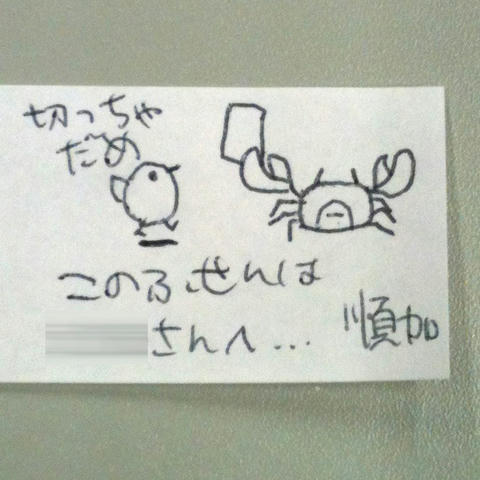 切っちゃ
だめ
このふせんは
さんへ...
順加